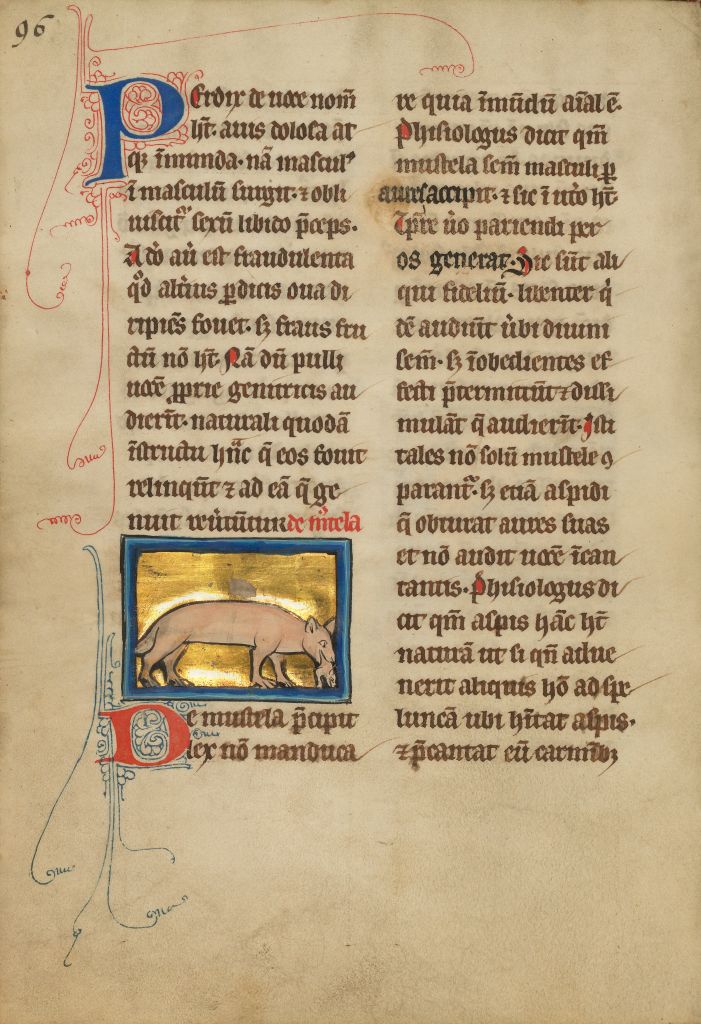 96
Perdix de uoce nom̄
ht̄. auis dolosa at
qꝫ īmunda. nā masculꝰ
ī masculū surgit. ⁊ obli
uiscit᷑ sexū libido p̄ceps.
Adō aū est fraudulenta
qͦd alt̄ius ꝑdicis oua di
ripiēs fouet. sꝫ fraus fru
ctū nō ht̄. Nā dū pulli
uocē ꝓprie genitricis au
dierīt. naturali quodā
īstructu hūc q̄ eos fouit
relinqūt ⁊ ad eā q̄ ge
nuit reu̾tūtur de mͯtela
De mustela p̄cipit
lex nō manduca
re quia īmūdū aīal ē.
Phisiologus dicit qm̄
mustela sem̄ masculi ꝑ
aures accipit. ⁊ sic ī ut̾o ht̄.
Tp̄re u̾o pariendi per
os generat. Sic sūt ali
qui fideliū. libenter qͥ
dē audiūt u̾bi diuini
sem̄. sꝫ īobedientes ef
fecti p̄termittūt ⁊ dissi
mulāt q̄ audierīt. Isti
tales nō solū mustele ꝯ
parant᷑. sꝫ etiā aspidi
q̄ obturat aures suas
et nō audit uocē īcan
tantis. Phisiologus di
cit qm̄ aspis hāc ht̄
naturā ut si qn̄ adue
nerit aliquis hō ad spe
luncā ubi hītat aspis.
⁊ p̄cantat eū carmībꝫ